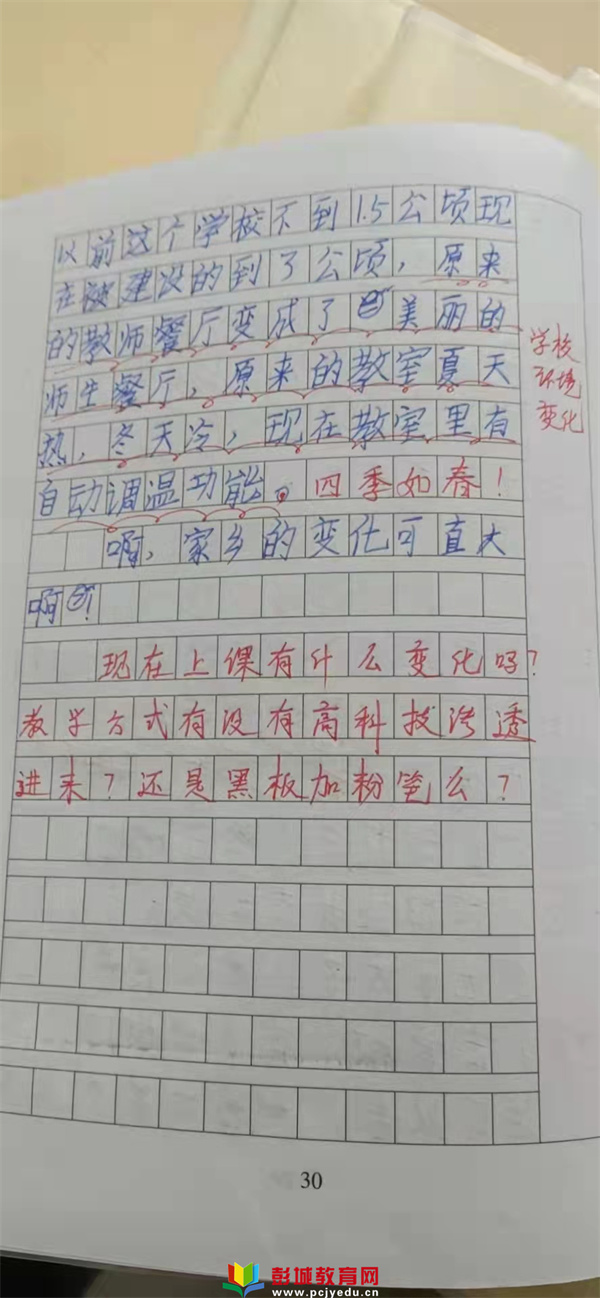 以前这个学校不到1.5公顷现
在被建设的到了公顷，原来
的教师餐厅变成了美丽的
师生餐厅，原来的教室夏天
热，冬天冷，现在教室里有
自动调温功能。四季如春！
学校
环境
变化
啊，家乡的变化可真大
啊！
现在上课有什么变化吗？
教学方式有没有高科技渗透
进来？还是黑板加粉笔么？
30
彭城教育网
www.pcjyedu.cn